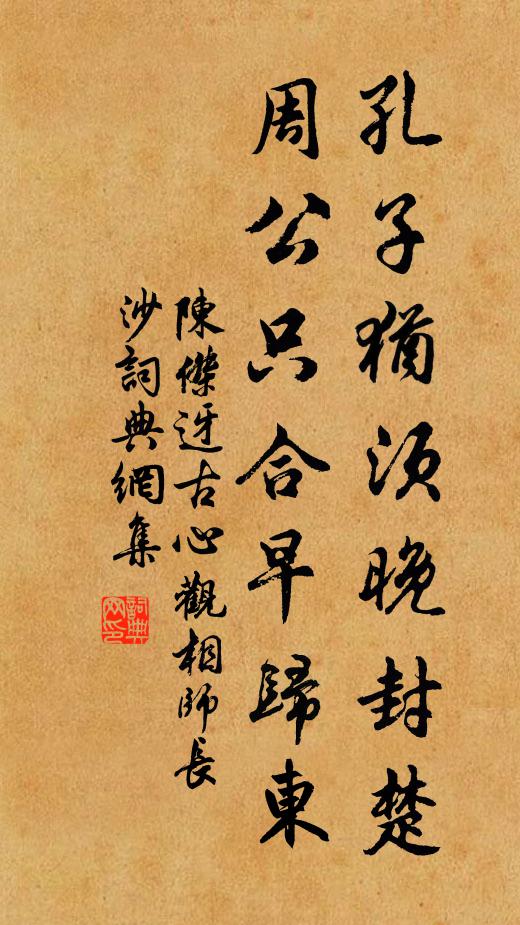 孔子猶須晚封楚
周公只合早歸東
陳傑迓古心觀相師長
沙詞典網集
詞典網印